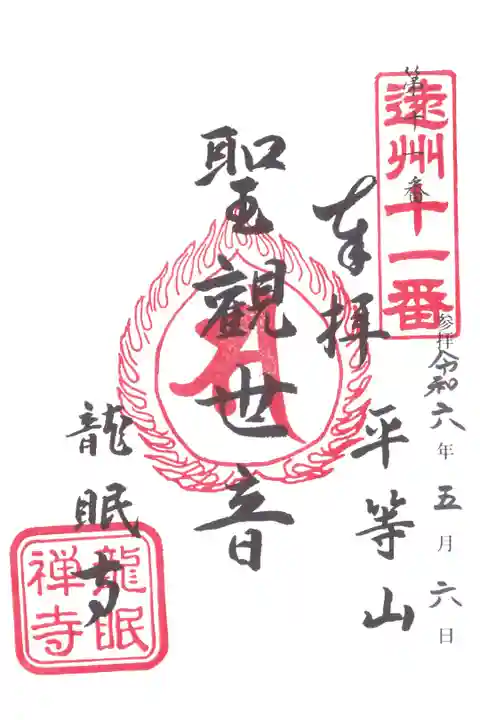 第十一番
遠州十一番
参拝令和六年五月六日
奉拝 平等山
聖観世音
龍眠寺
龍眠
禅寺